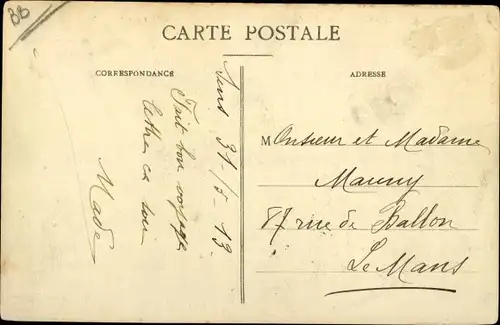 BB
CARTE POSTALE
CORRESPONDANCE
ADRESSE
Sens 31/5-13
Fait bon voyage
Made
Monsieur et Madame
Mauny
87 rue de Ballon
Le Mans